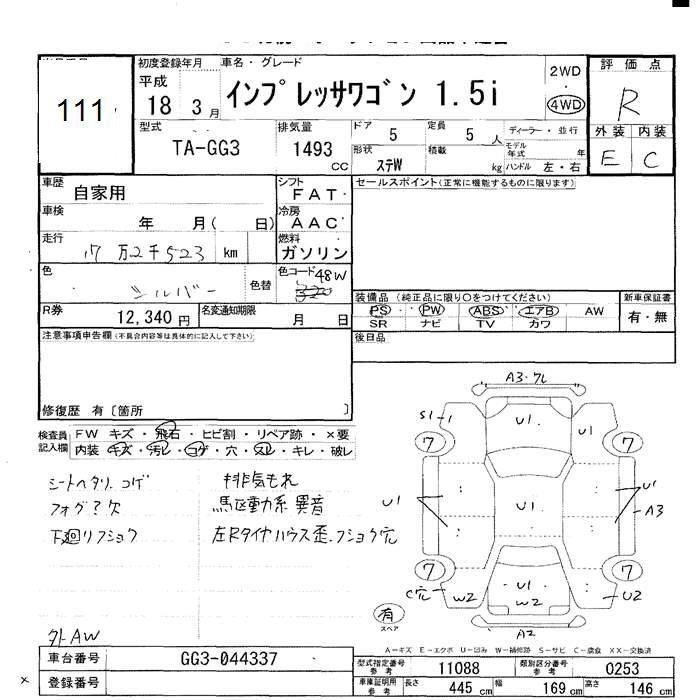 111
初度登録年月 車名・グレード
平成 18 3 月
インプレッサワゴン 1.5i
2WD
・
4WD
評価点
R
外装 内装
E C
型式
TA-GG3
排気量
1493 CC
ドア 5
定員 5 人
ディーラー・並行
形状 ステW
積載 kg
モデル年式 年
ハンドル 左・右
車歴 自家用
シフト FAT
セールスポイント(正常に機能するものに限ります)
車検 年 月( 日)
冷房 AAC
走行 万2千523 km
燃料 ガソリン
色 シルバー 色替
色コード 48W
装備品 (純正品に限り○をつけてください)
PS PW ABS エアB AW
SR ナビ TV カワ
新車保証書
有・無
R券 12,340 円
名変通知期限 月 日
後日品
注意事項申告欄(不具合内容等は具体的に記入して下さい)
修復歴 有〔箇所 〕
検査員記入欄
FW キズ・飛石・ヒビ割・リペア跡・×要
内装 キズ・汚レ・コゲ・穴・スレ・キレ・破レ
シートヘタリ コゲ
フォグ?欠
下廻リフショク
排気もれ
馬区動力系 異音
左Rタイヤハウス歪.フショク穴
外AW
A3・ワレ
S1
U1
U1
7
7
U1
U1
U1
A3
7
7
U1
C穴
W2
W2
U2
A2
有
スペア
A-キズ E-エクボ U-凹み W-補修跡 S-サビ C-腐食 XX-交換済
車台番号 GG3-044337
登録番号
型式指定番号 参考 11088
類別区分番号 参考 0253
車庫証明用 参考 長さ 445 cm 幅 169 cm 高さ 146 cm
×